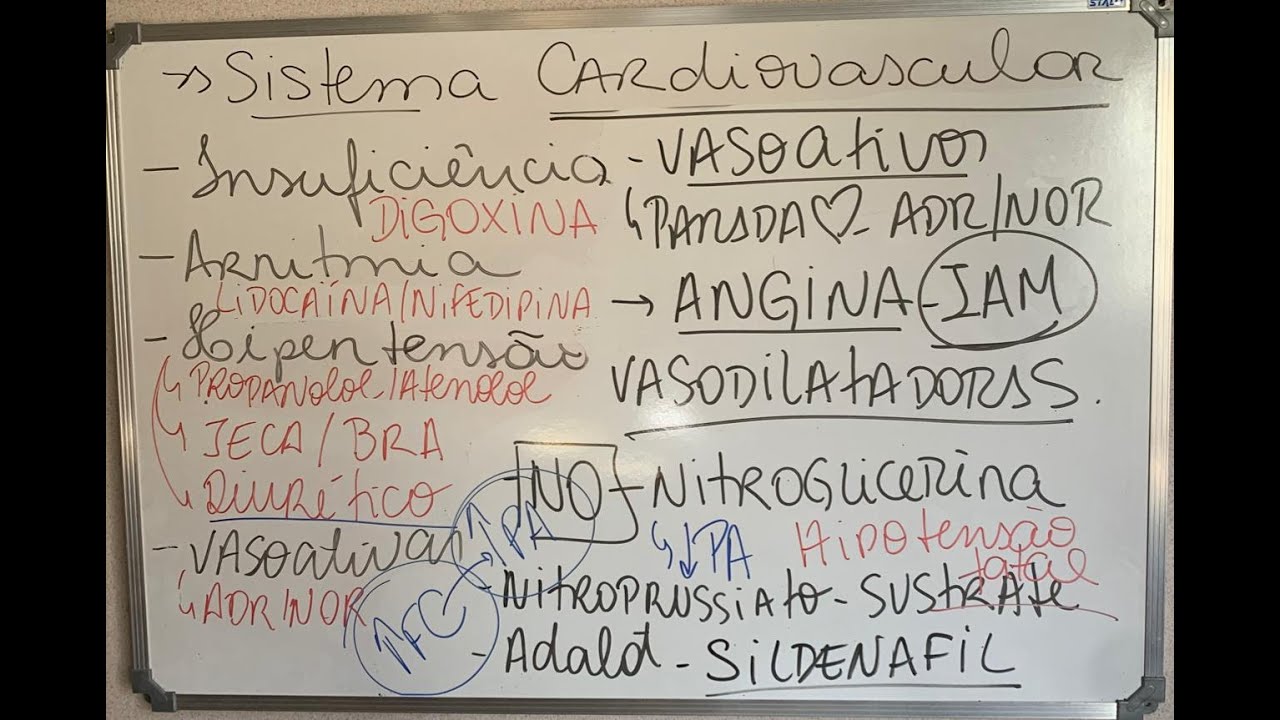 → Sistema CARdiovascular
- Insuficiência
DIGOXINA
- Arritmia
LIDOCAÍNA/NIFEDIPINA
- Hipertensão
↳ PROPANOLOL-/Atenolol
↳ IECA/BRA
↳ Diurético
- VASOativas
↳ ADR/NOR
↑FC → ↑PA
- VASOativos
↳ PARADA ♡ - ADR/NOR
→ ANGINA - IAM
VASODILATADORES.
- NO - NITROGlicerina
↳ ↓PA Hipotensão
fatal
- NITROPRUSSIATO - SUSTRATE
- Adalat - SILDENAFIL